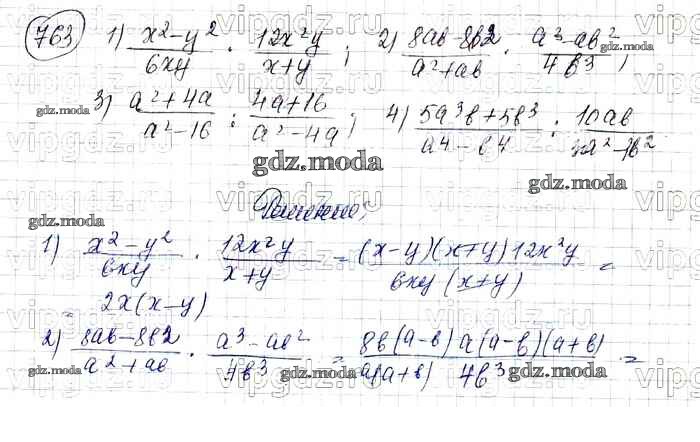 763 1) (x²-y²)/(6xy) · (12x²y)/(x+y); 2) (8ab-8b2)/(a²+ab) · (a³-ab²)/(4b³);
3) (a²+4a)/(a²-16) : (4a+16)/(a²-4a); 4) (5a³b+5b³)/(a4-b4) : 10ab/
Решение:
1) (x²-y²)/(6xy) · (12x²y)/(x+y) = ((x-y)(x+y)12x²y)/(6xy(x+y)) =
= 2x(x-y)
2) (8ab-8b2)/(a²+ab) · (a³-ab²)/(4b³) = (8b(a-b)a(a-b)(a+b))/(a(a+b) 4b³) =
vipgdz.ru
gdz.moda